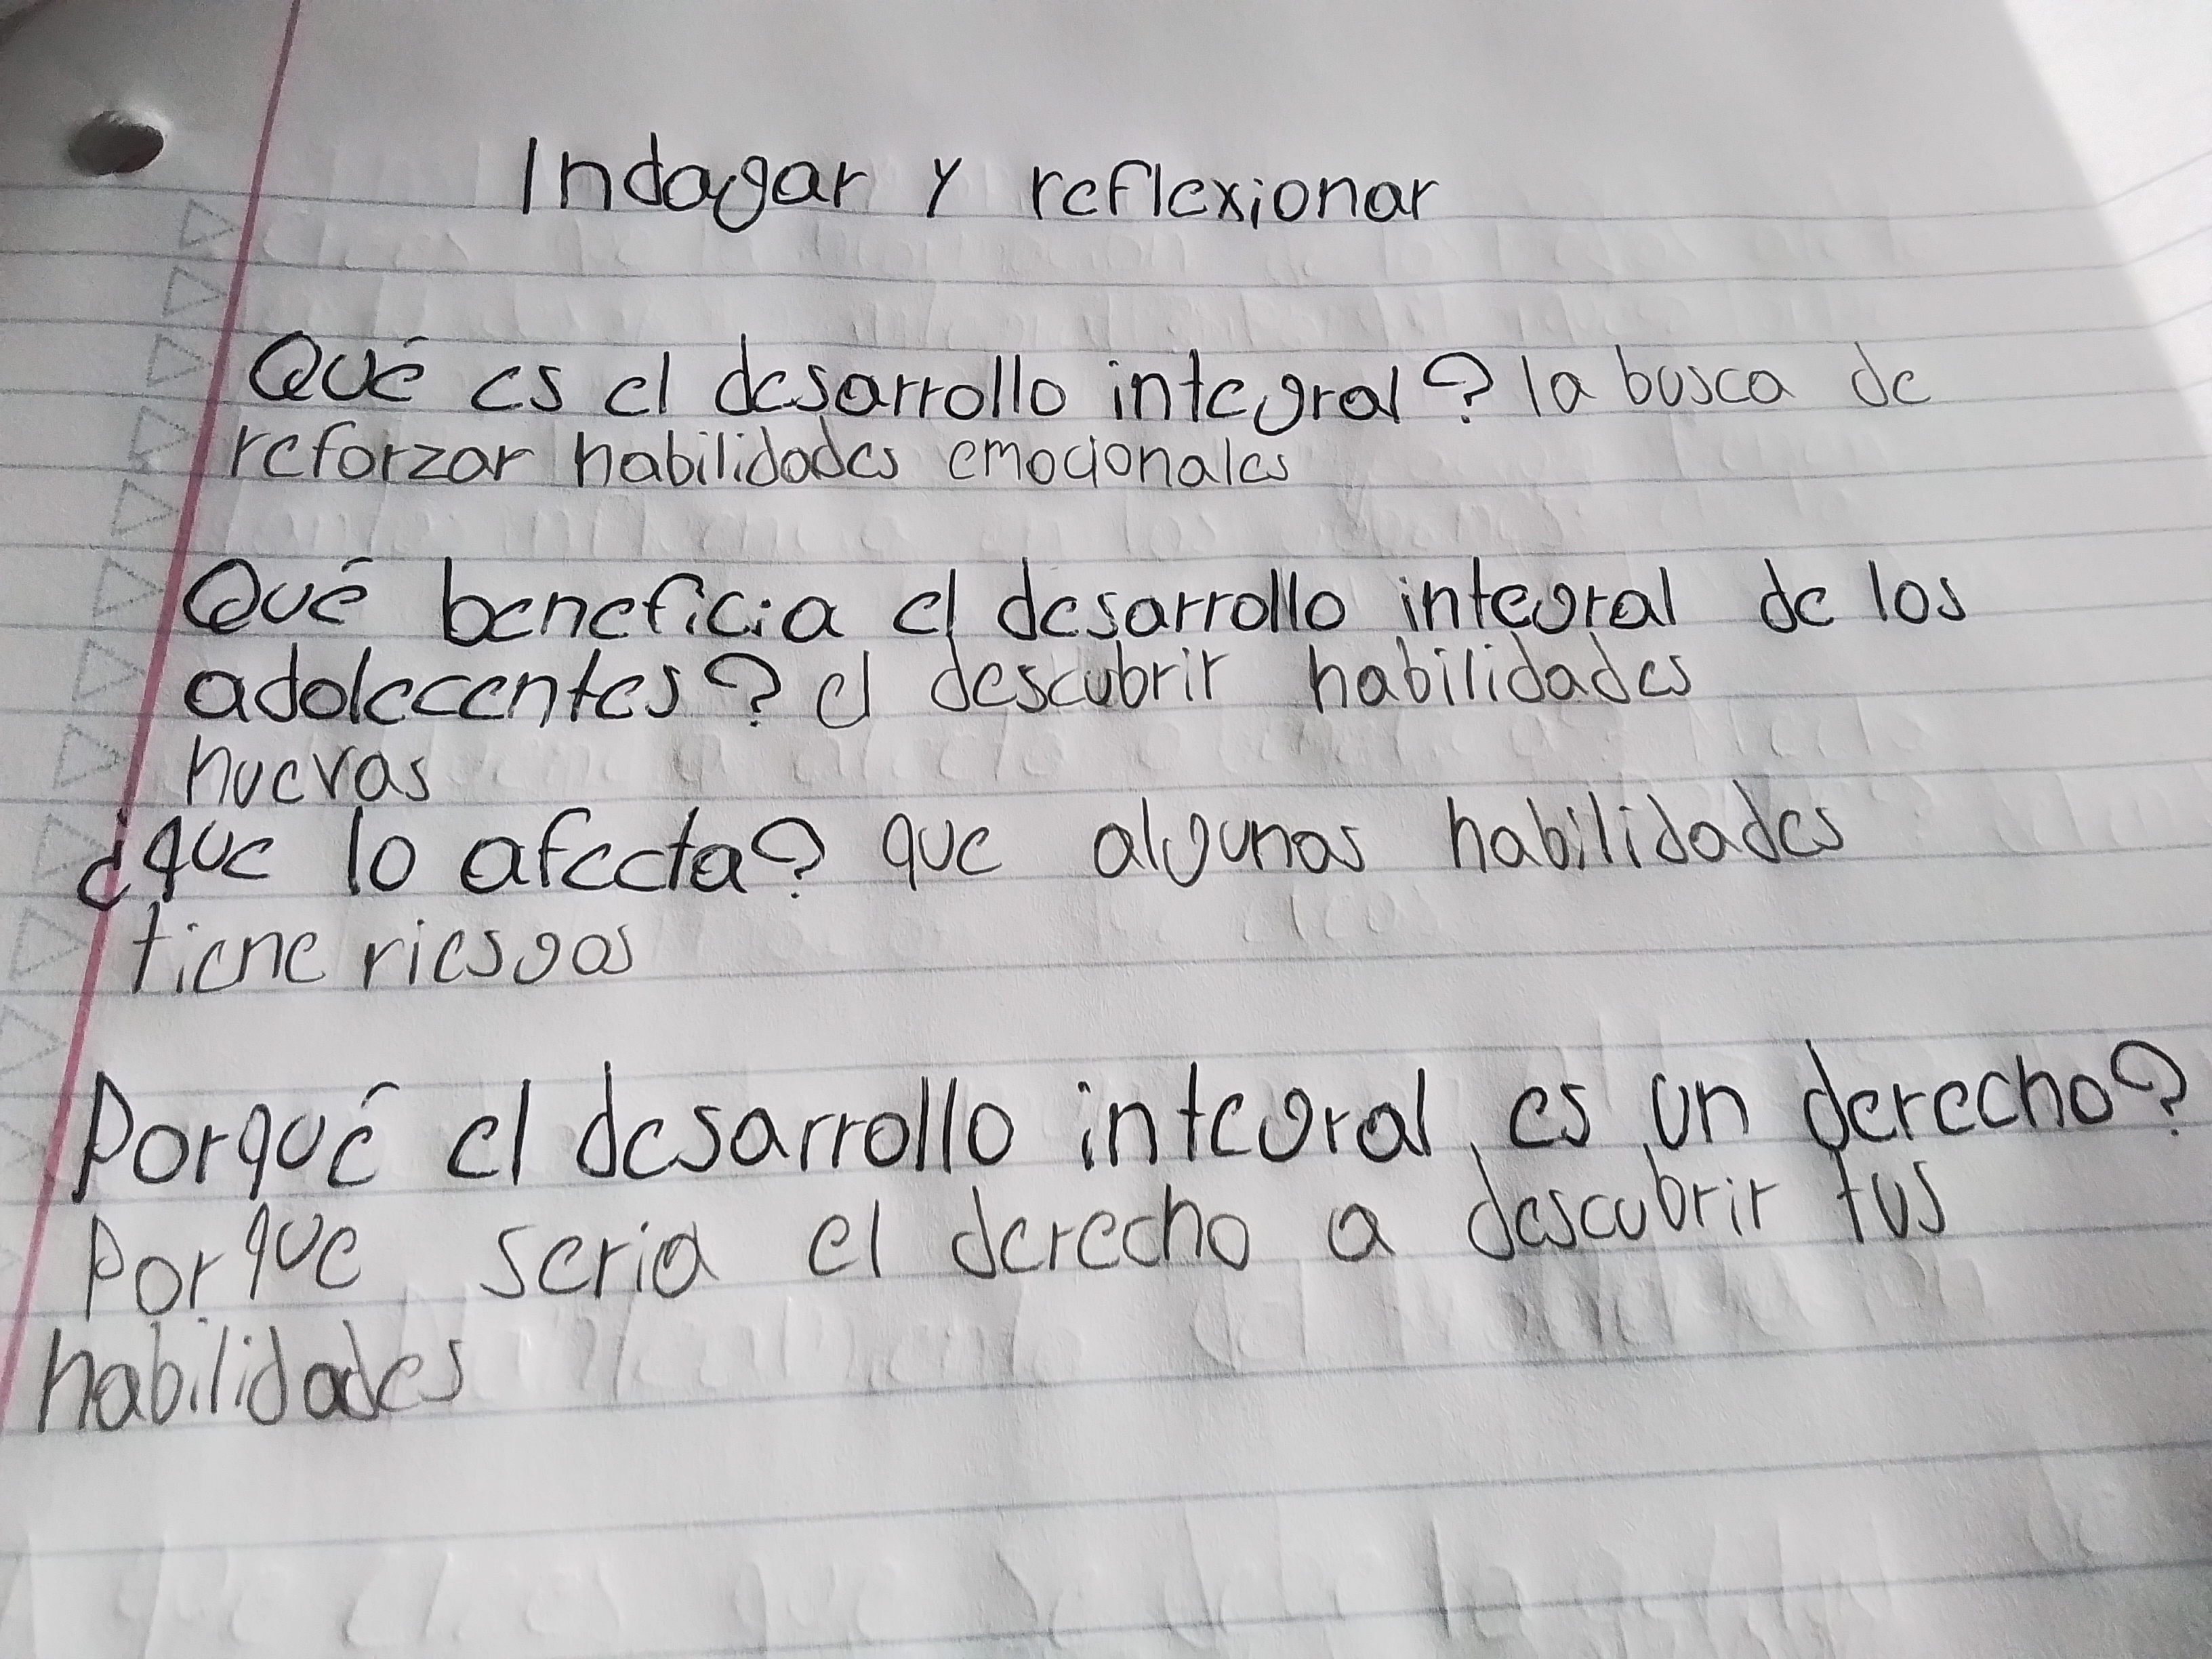 Indagar y reflexionar
Qué es el desarrollo integral? la busca de
reforzar habilidades emocionales
Qué beneficia el desarrollo integral de los
adolecentes? el descubrir habilidades
nuevas
¿que lo afecta? que algunas habilidades
tiene riesgos
Porqué el desarrollo integral es un derecho?
Porque seria el derecho a descubrir tus
habilidades